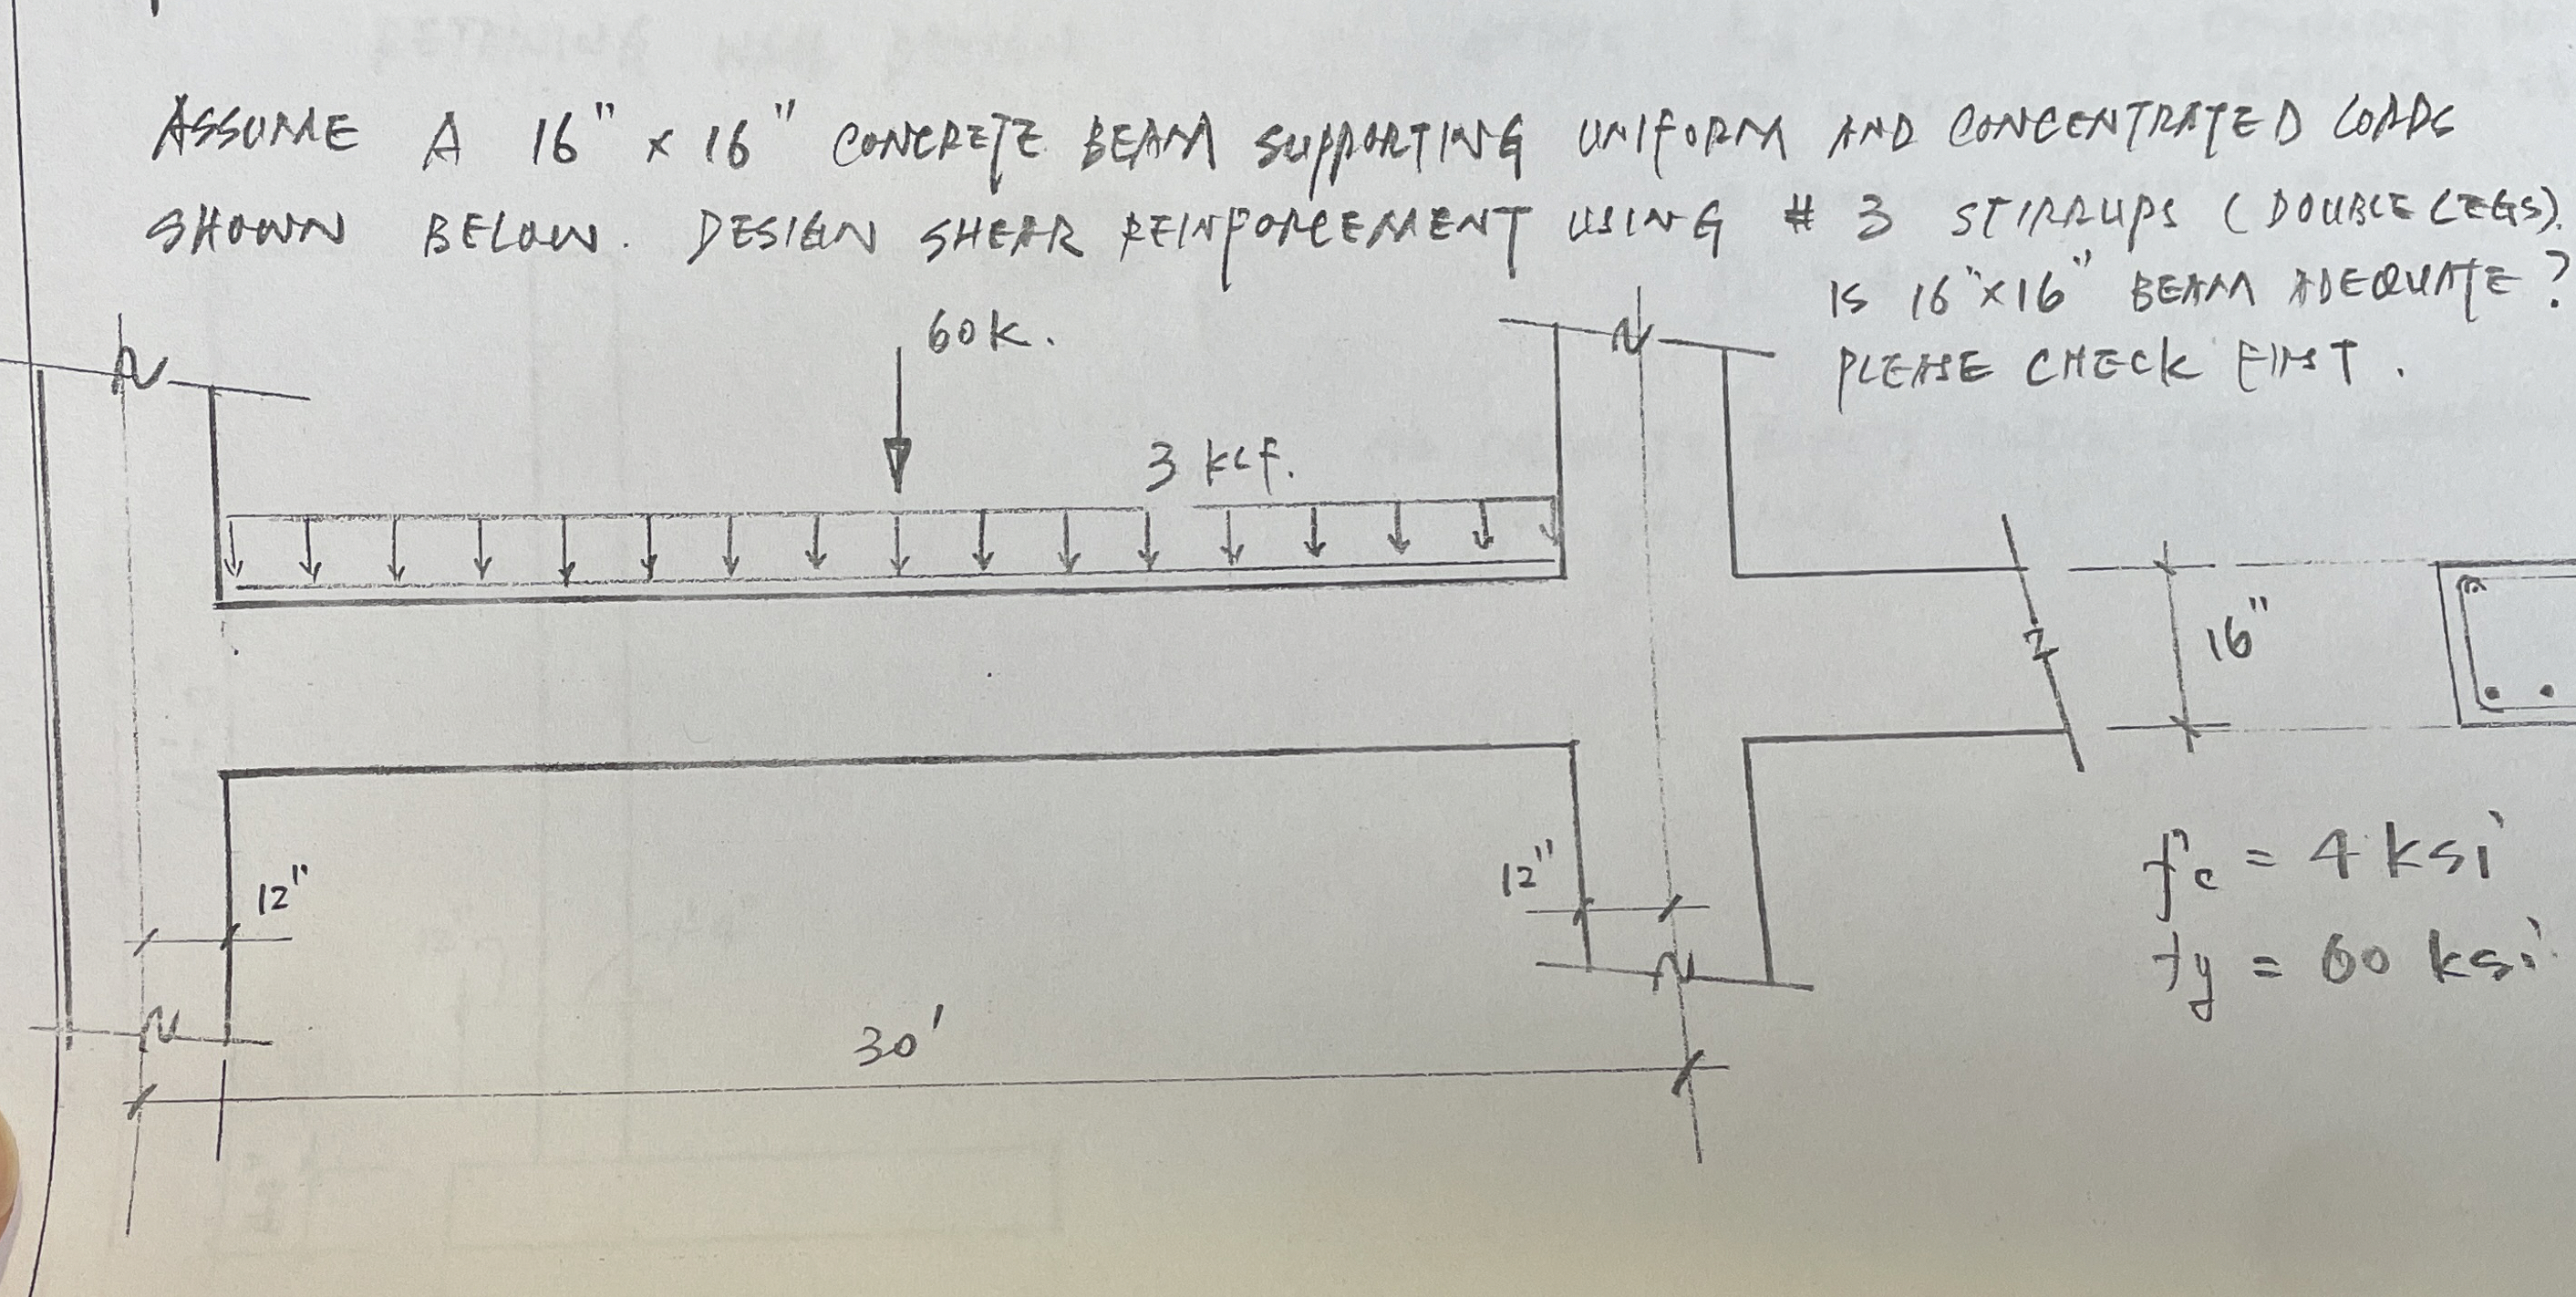 ASSUME A 16" x 16" CONCRETE BEAM SUPPORTING UNIFORM AND CONCENTRATED LOADS
SHOWN BELOW. DESIGN SHEAR REINFORCEMENT USING # 3 STIRRUPS (DOUBLE LEGS).
IS 16"x16" BEAM ADEQUATE?
PLEASE CHECK FIRST.
60K.
3 KLF.
16"
12"
12"
f'c = 4 ksi
fy = 60 ksi
30'